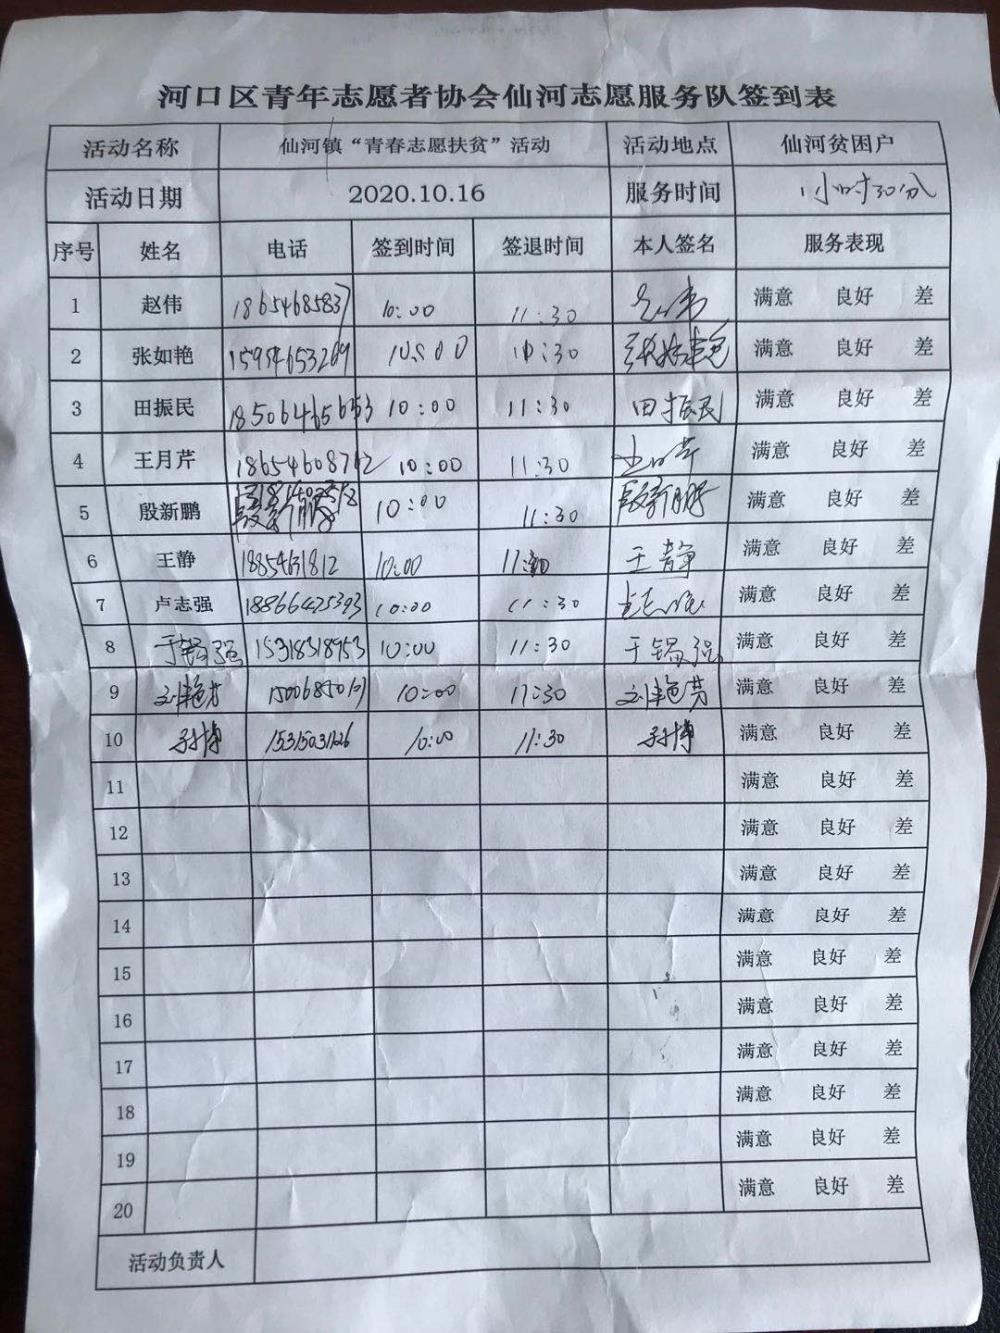 河口区青年志愿者协会仙河志愿服务队签到表
活动名称 仙河镇“青春志愿扶贫”活动 活动地点 仙河贫困户
活动日期 2020.10.16 服务时间 1小时30分
序号 姓名 电话 签到时间 签退时间 本人签名 服务表现
1 赵伟 18654685837 10:00 11:30 满意 良好 差
2 张如艳 15954653269 10:00 10:30 张如艳 满意 良好 差
3 田振民 10:00 11:30 田振民 满意 良好 差
4 王月芹 18654608762 10:00 11:30 王月芹 满意 良好 差
5 殷新鹏 10:00 11:30 殷新鹏 满意 良好 差
6 王静 1885431812 10:00 王静 满意 良好 差
7 卢志强 18866425393 10:00 11:30 卢志强 满意 良好 差
8 15318318953 10:00 11:30 满意 良好 差
9 刘艳芳 10:00 11:30 刘艳芳 满意 良好 差
10 孙博 15315031226 10:00 11:30 孙博 满意 良好 差
11 满意 良好 差
12 满意 良好 差
13 满意 良好 差
14 满意 良好 差
15 满意 良好 差
16 满意 良好 差
17 满意 良好 差
18 满意 良好 差
19 满意 良好 差
20 满意 良好 差
活动负责人